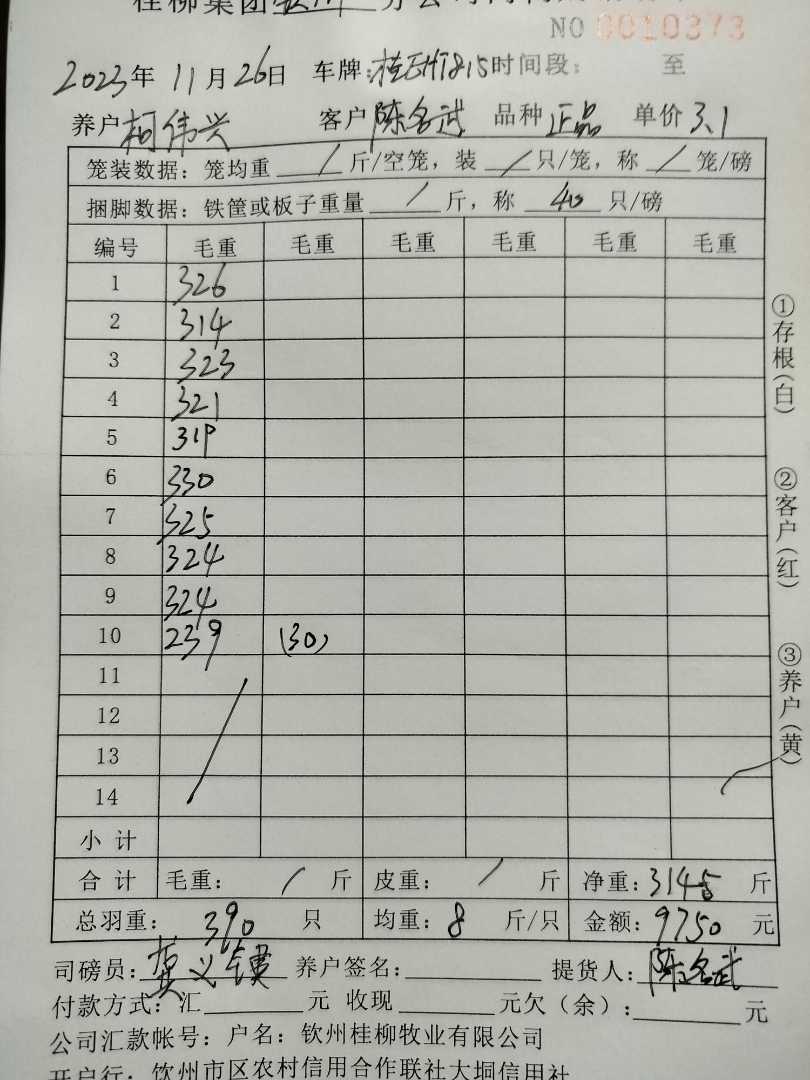 桂柳集团钦州分公司
NO 0010373
2023年 11月 26日 车牌:桂EHT815 时间段: 至
养户 柯伟兴 客户 陈名武 品种 正品 单价 3.1
笼装数据: 笼均重 / 斤/空笼, 装 / 只/笼, 称 / 笼/磅
捆脚数据: 铁筐或板子重量 / 斤, 称 40 只/磅
编号 毛重 毛重 毛重 毛重 毛重 毛重
1 326
2 314
3 323
4 321
5 319
6 330
7 325
8 324
9 324
10 239 (30)
11
12
13
14
小计
合计 毛重: / 斤 皮重: / 斤 净重: 3145 斤
总羽重: 390 只 均重: 8 斤/只 金额: 9750 元
司磅员: 养户签名: 提货人: 陈名武
付款方式: 汇 元 收现 元欠(余): 元
公司汇款帐号: 户名: 钦州桂柳牧业有限公司
开户行: 钦州市区农村信用合作联社大垌信用社
①存根(白)
②客户(红)
③养户(黄)